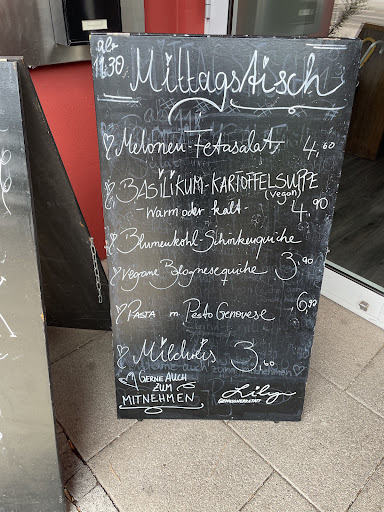 ab
11.30 Mittagstisch
Melonen-Fetasalat 4,60
BASILIKUM-KARTOFFELSUPPE
(vegan)
-warm oder kalt- 4,90
Blumenkohl-Schinkenquiche
vegane Bolognesequiche 3,90
PASTA m. Pesto Genovese 6,90
Milchreis 3,60
GERNE AUCH
ZUM
MITNEHMEN
Lily
GENUSSWERKSTATT